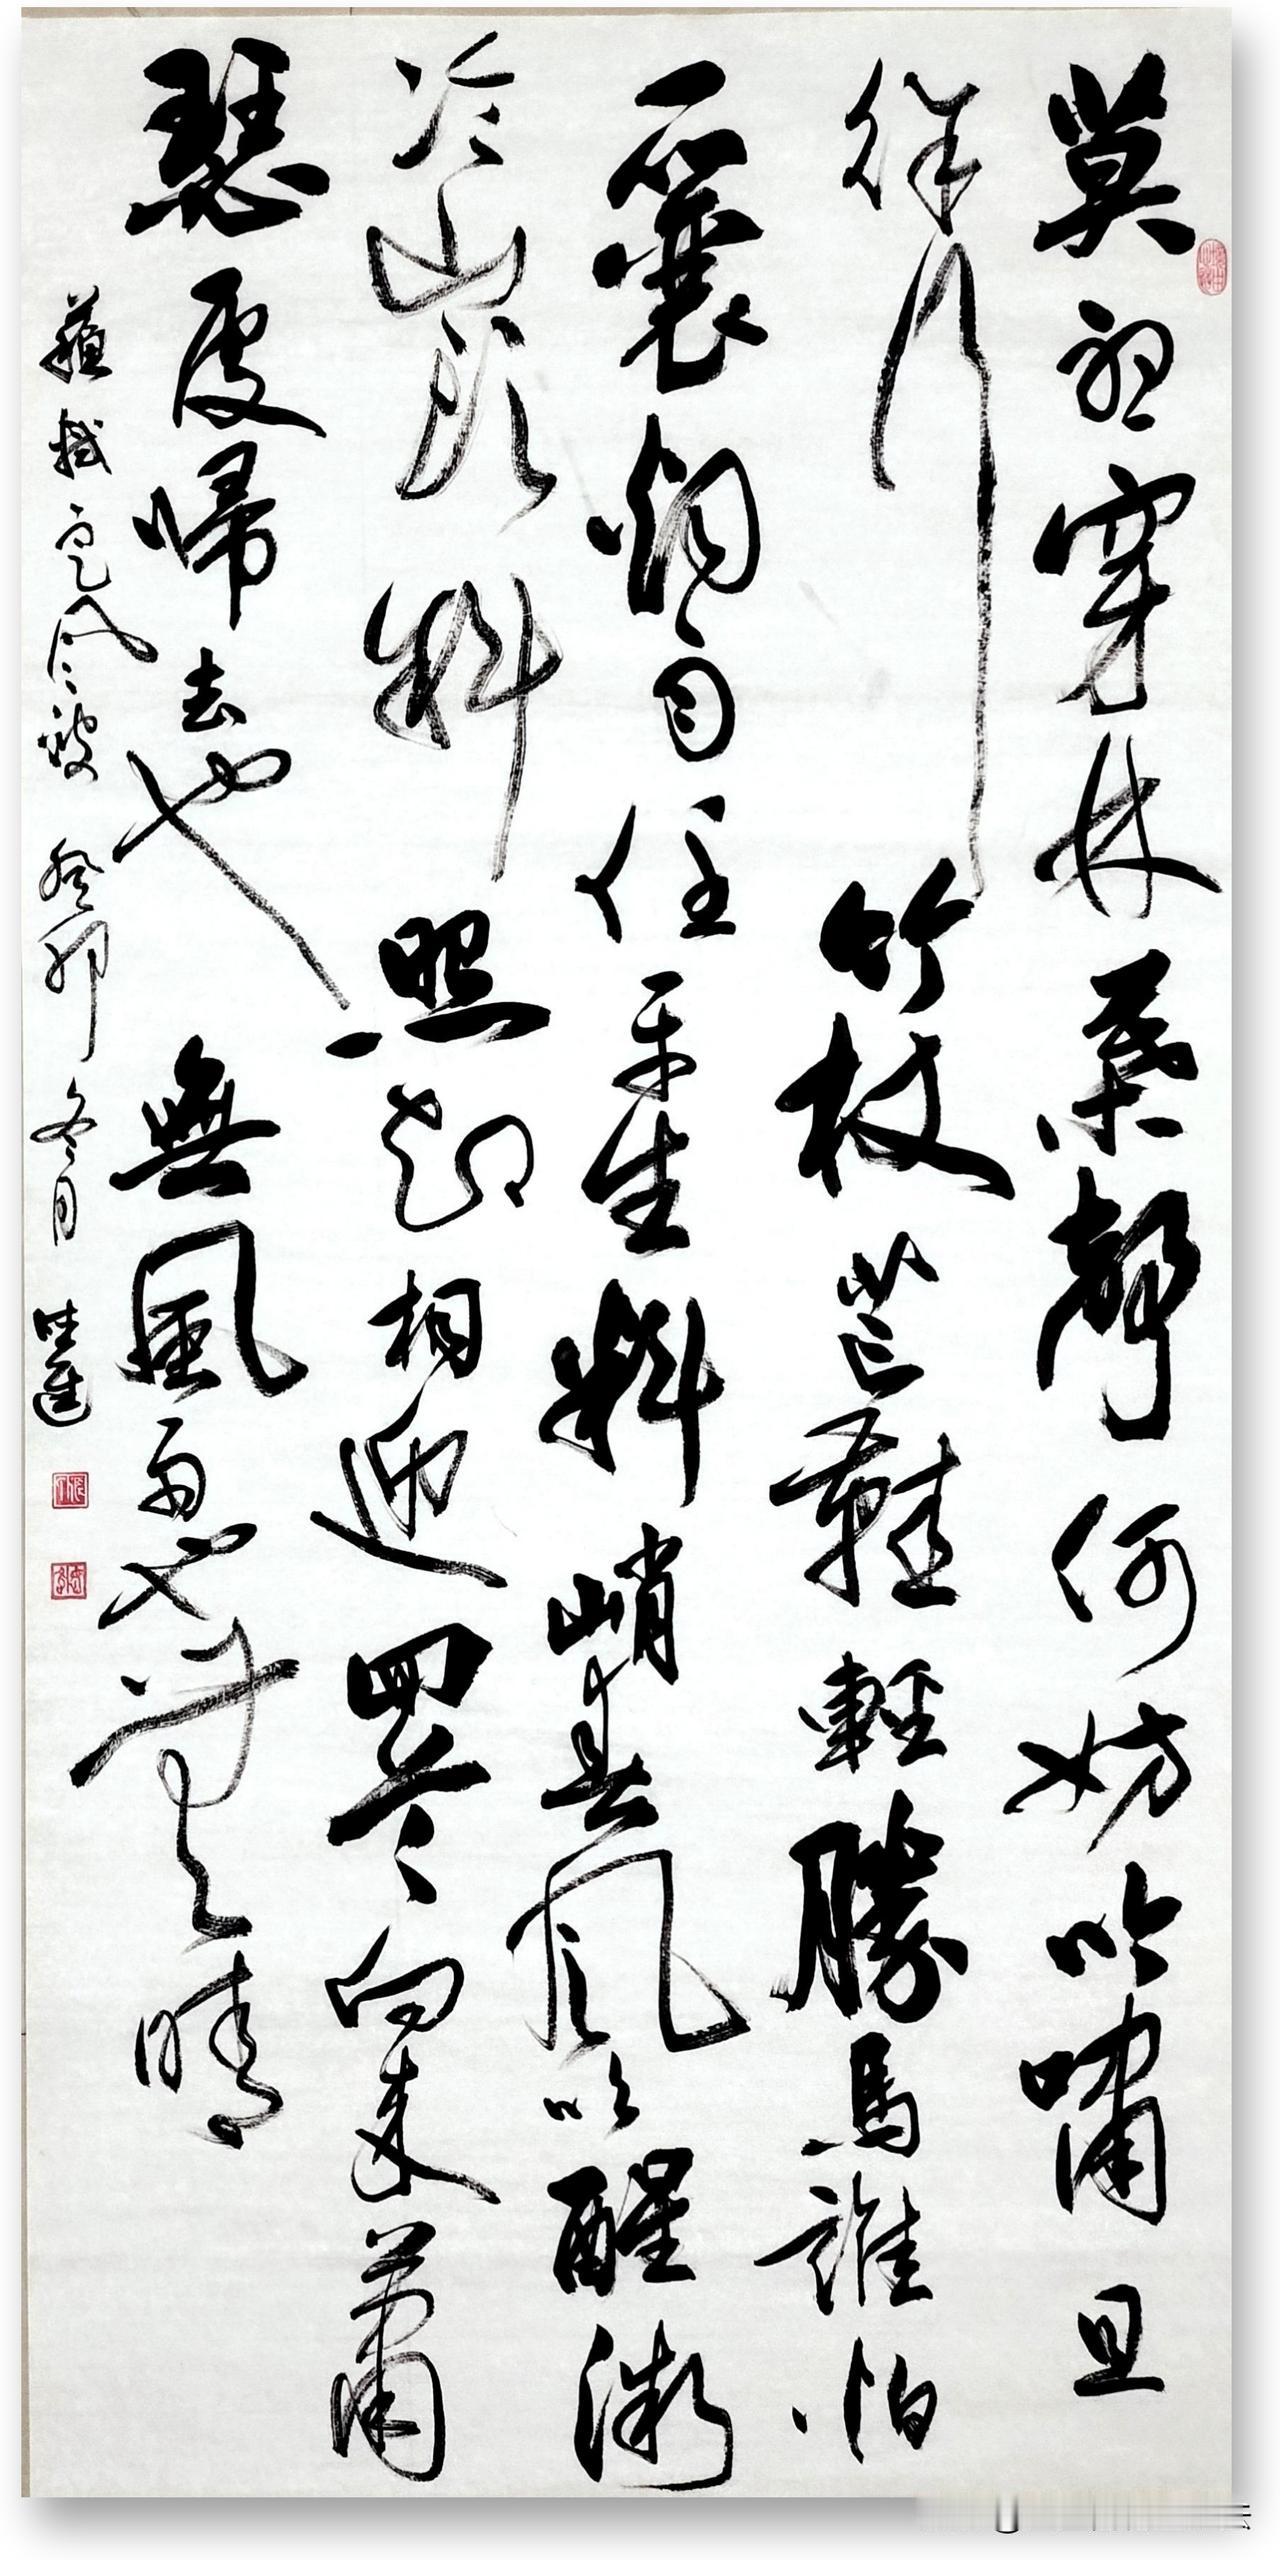 莫聽穿林葉聲何妨吟嘯且
徐行竹杖芒鞋輕勝馬誰怕
一蓑烟雨任平生料峭春風吹醒微
冷山頭斜照却相迎回首向來蕭
瑟處歸去也無風雨也無晴
蘇軾定風波 癸卯冬月 進